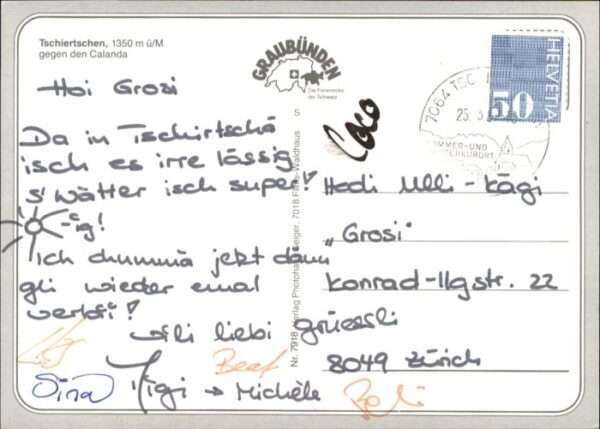 Tschiertschen, 1350 m ü/M
gegen den Calanda
GRAUBÜNDEN
Die Ferienecke
der Schweiz
HELVETIA
50
7064 TSC
25. 3.
SOMMER-UND
WINTERKURORT
S
Nr. 7918 Verlag Photohaus Geiger, 7018 Flims-Waldhaus
Hoi Grosi
Da in Tschirtschä
isch es irre lässig
s'wätter isch super!
-ig!
Ich chummä jetzt dann
gli wieder emal
verbi!
Vili liebi grüessli
Coco
Beat
Sina
Migi → Michèle
Hedi Ulli-Kägi
"Grosi"
Konrad-Ilgstr. 22
8049 Zürich